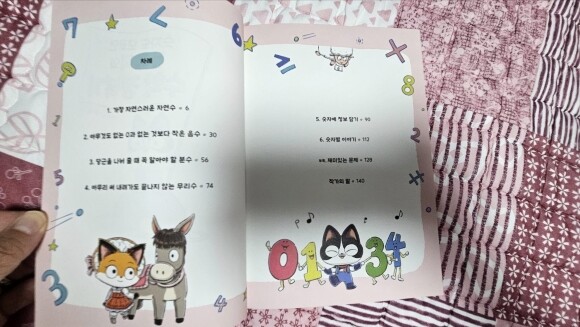 차례
1. 가장 자연스러운 자연수 = 6
2. 아무것도 없는 0과 없는 것보다 작은 음수 = 30
3. 당근을 나눠 줄 때 꼭 알아야 할 분수 = 56
4. 아무리 써 내려가도 끝나지 않는 무리수 = 74
5. 숫자에 정보 담기 = 90
6. 숫자별 이야기 = 112
부록. 재미있는 문제 = 128
작가의 말 = 140